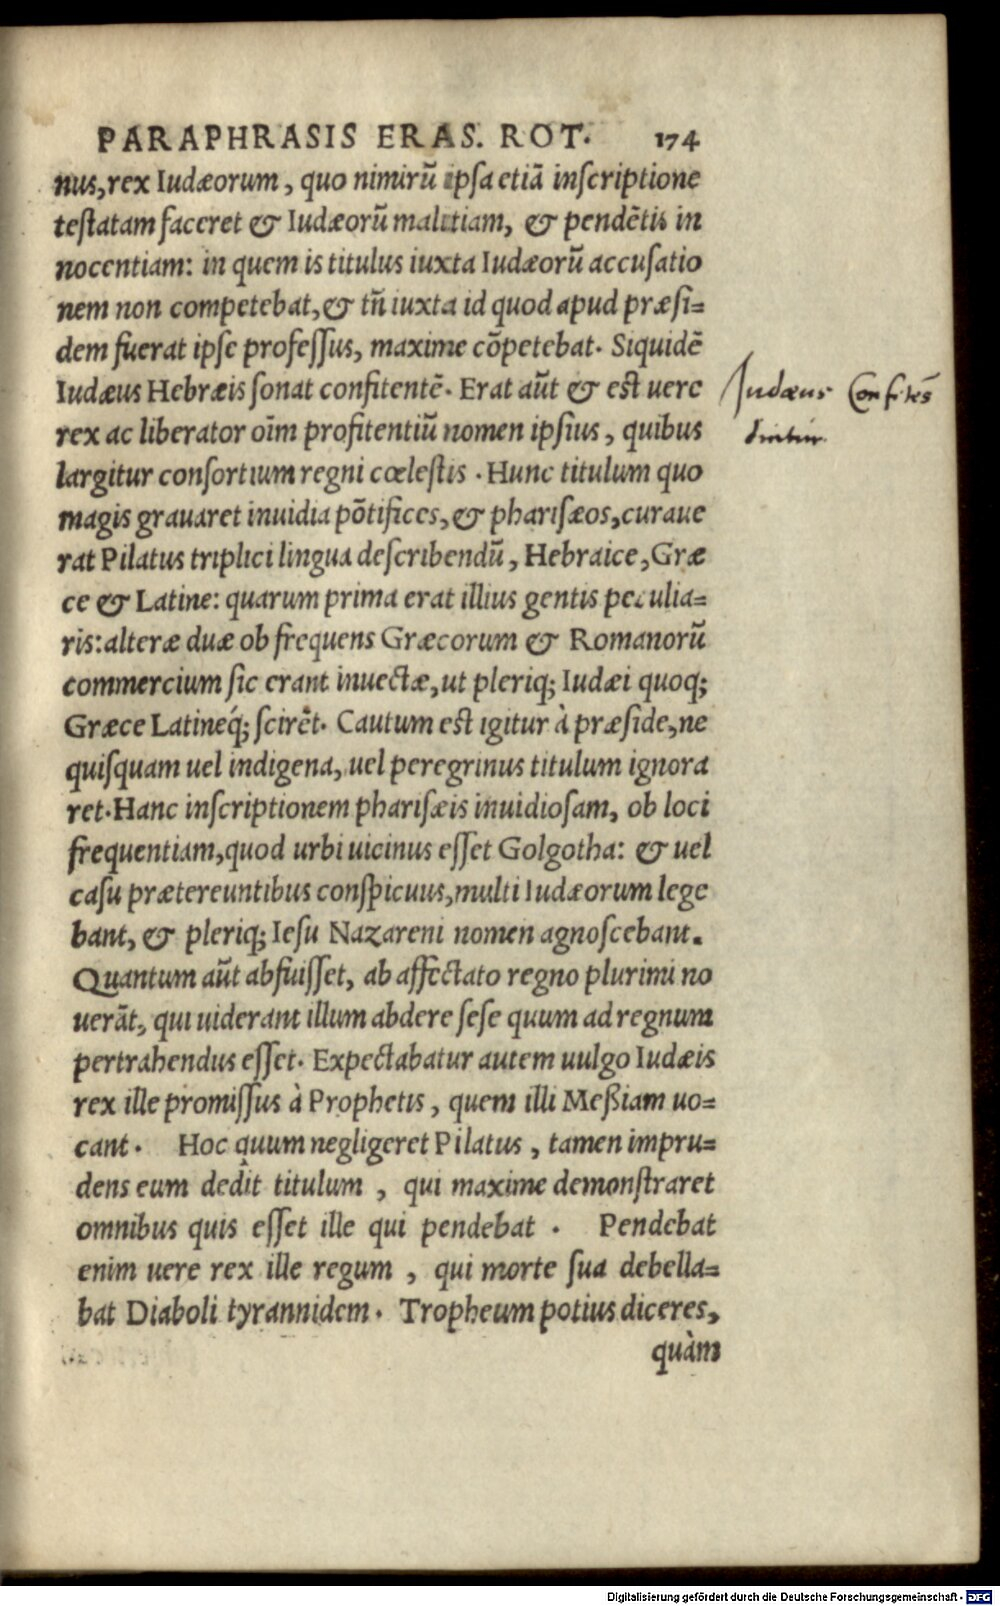 PARAPHRASIS ERAS. ROT. 174
nus, rex Iudæorum, quo nimirũ ipsa etiã inſcriptione
teſtatam faceret & Iudæorũ malitiam, & pendẽtis in
nocentiam: in quem is titulus iuxta Iudæorũ accuſatio
nem non competebat, & tñ iuxta id quod apud præſi=
dem fuerat ipſe profeſſus, maxime cõpetebat. Siquidẽ
Iudæus Hebræis ſonat confitentẽ. Erat aũt & eſt uere
rex ac liberator oĩm profitentiũ nomen ipſius, quibus
largitur conſortium regni cœleſtis. Hunc titulum quo
magis grauaret inuidia põtifices, & phariſæos, curaue
rat Pilatus triplici lingua deſcribendũ, Hebraice, Græ
ce & Latine: quarum prima erat illius gentis peculia=
ris: alteræ duæ ob frequens Græcorum & Romanorũ
commercium ſic erant inuectæ, ut pleriq; Iudæi quoq;
Græce Latineq́; ſcirẽt. Cautum eſt igitur à præſide, ne
quiſquam uel indigena, uel peregrinus titulum ignora
ret. Hanc inſcriptionem phariſæis inuidioſam, ob loci
frequentiam, quod urbi uicinus eſſet Golgotha: & uel
caſu prætereuntibus conſpicuus, multi Iudæorum lege
bant, & pleriq; Ieſu Nazareni nomen agnoſcebant.
Quantum aũt abfuiſſet, ab affectato regno plurimi no
uerãt, qui uiderant illum abdere ſeſe quum ad regnum
pertrahendus eſſet. Expectabatur autem uulgo Iudæis
rex ille promiſſus à Prophetis, quem illi Meßiam uo=
cant. Hoc quum negligeret Pilatus, tamen impru=
dens eum dedit titulum, qui maxime demonſtraret
omnibus quis eſſet ille qui pendebat. Pendebat
enim uere rex ille regum, qui morte ſua debella=
bat Diaboli tyrannidem. Tropheum potius diceres,
quàm
Iudæus Confitẽs
dicitur.
Digitalisierung gefördert durch die Deutsche Forschungsgemeinschaft - DFG